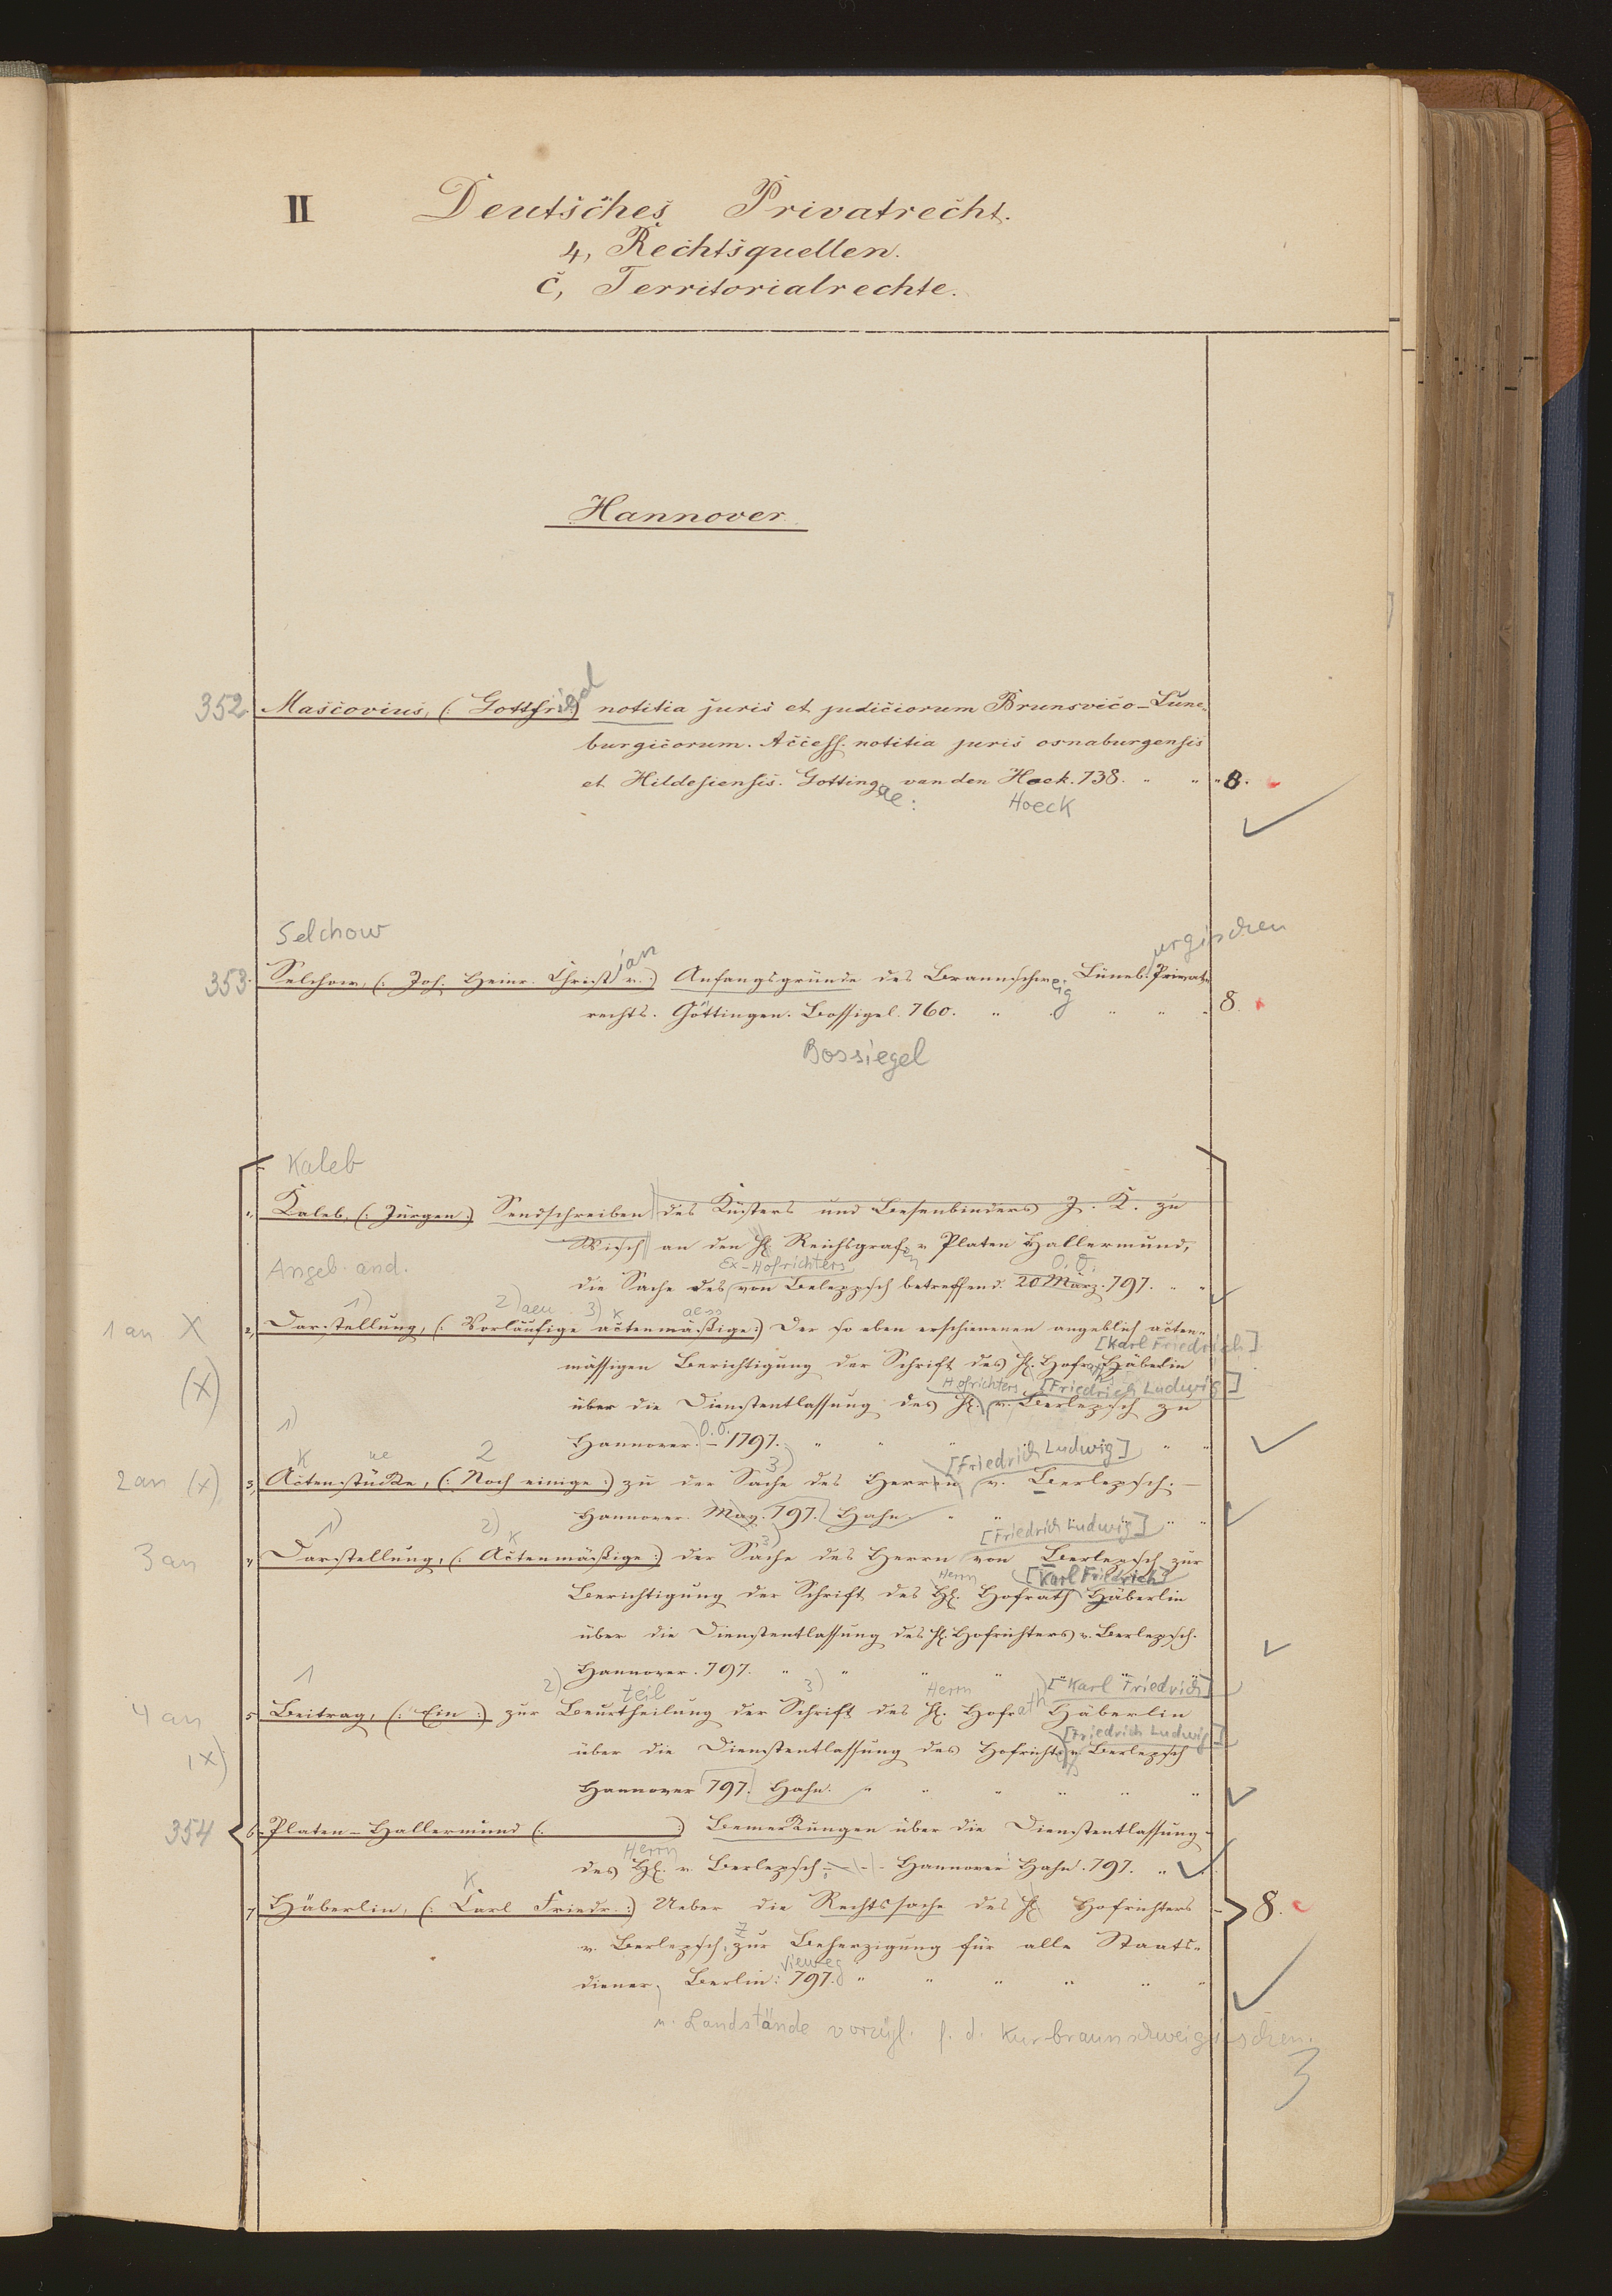 II Deutsches Privatrecht.
4, Rechtsquellen.
c, Territorialrechte.
Hannover
352. Mascovius, (: Gottfried :) notitia juris et judiciorum Brunsvico-Lune-
burgicorum. Access. notitia juris osnaburgensis
et Hildesiensis. Gotting. van den Hoek. 738. " " " 8.
ae: Hoeck
Selchow
ian urgischen
353. Selchow, (: Joh. Heinr. Christ. v. :) Anfangsgründe des Braunschweig Lüneb. Privat-
rechts. Göttingen. Bossigel. 760. " " " " " 8.
Bossiegel
Kaleb
1, Kaleb, (: Jürgen :) Sendschreiben des Küsters und Besenbinders J. K. zu
Wisch an den H. Reichsgrafen v. Platen Hallermund,
Angeb. and. Ex-Hofrichters O. O.
die Sache des von Beleppsch betreffend. 20 März. 797. " "
1) 2) aeu 3) k aess
1 an X 2, Darstellung, (: Vorläufige actenmäßige :) Der so eben erschienenen angeblich acten-
[Karl Friedrich]
(X) mässigen Berichtigung der Schrift des H. Hofrath Häberlin
Hofrichters [Friedrich Ludwig]
über die Dienstentlassung des H. v. Berlepsch zu
1) O. O.
Hannover. – 1797. " " " " " "
K ue 2 3) [Friedrich Ludwig]
2 an (x) 3, Actenstücke, (: Noch einige :) zu der Sache des Herrn v. Berlepsch. –
Hannover. May. 797. Hahn. " " " " "
1) 2) k 3) [Friedrich Ludwig]
3 an 4, Darstellung, (: Actenmäßige :) der Sache des Herrn von Berlepsch zur
Herrn [Karl Friedrich]
Berichtigung der Schrift des H. Hofrath Häberlin
über die Dienstentlassung des H. Hofrichters v. Berlepsch.
Hannover. 797. " " " " " "
1 2) teil 3) Herrn [Karl Friedrich]
4 an 5, Beitrag, (: Ein :) zur Beurtheilung der Schrift des H. Hofrath Häberlin
[Friedrich Ludwig]
(x) über die Dienstentlassung des Hofrichters v. Berlepsch
Hannover 797. Hahn. " " " " " "
354 6, Platen-Hallermund (: :) Bemerkungen über die Dienstentlassung
Herrn
des H. v. Berlepsch – Hannover Hahn. 797. " "
K
7, Häberlin, (: Carl Friedr. :) Ueber die Rechtssache des H. Hofrichters – 8.
v. Berlepsch, zur Beherzigung für alle Staats-
Vieweg
diener, Berlin: 797. " " " " " "
u. Landstände vorzügl. f. d. Kurbraunschweigischen.
3